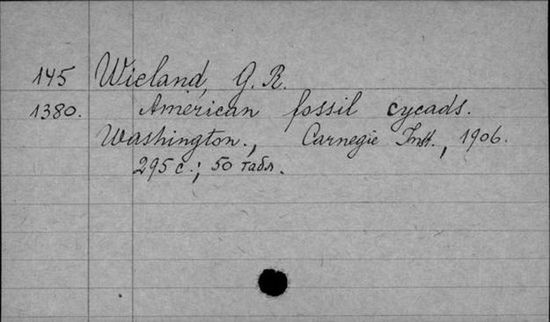 145 Wieland, G. R.
1380. American fossil cycads.
Washington., Carnegie Inst., 1906.
295 с.; 50 табл.